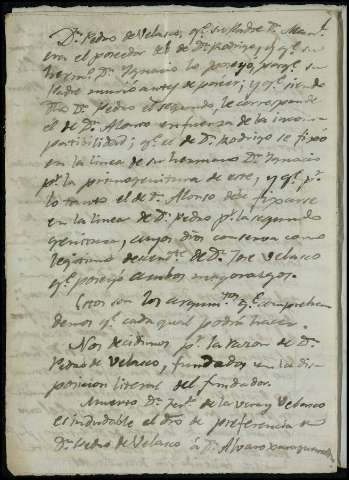 Dn. Pedro de Velasco, qe. su Padre Dn. Man.l
era el poseedor del de Dn. Rodrigo, y qe. su
herm.o Dn. Ignacio lo poseyó, porqe. su
Padre murió antes de poseer; y qe. siendo
Dn. Pedro el segundo, le corresponde
el de Dn. Alonso en fuerza de la incom
patibilidad; qe. el de Dn. Rodrigo se fijó
en la linea de su hermano Dn. Ignacio
pr. la primogenitura de este, y qe. pr.
lo tanto el de Dn. Alonso debe fijarse
en la linea de Dn. Pedro pr. la segundo
genitura, cuyos dros conserva como
legitimo descend.te de Dn. Jose Velasco
qe. poseyó ambos mayorazgos.
Estos son los argum.tos qe. comprehen
demos qe. cada qual podrá hacer.
Nos decidimos pr. la razon de Dn.
Pedro de Velasco, fundados en la dis
posicion literal del fundador.
Muerto Dn. de la Vera y Velasco
es indudable el dro de preferencia en
Dn. Pedro de Velasco á Dn. Alvaro para